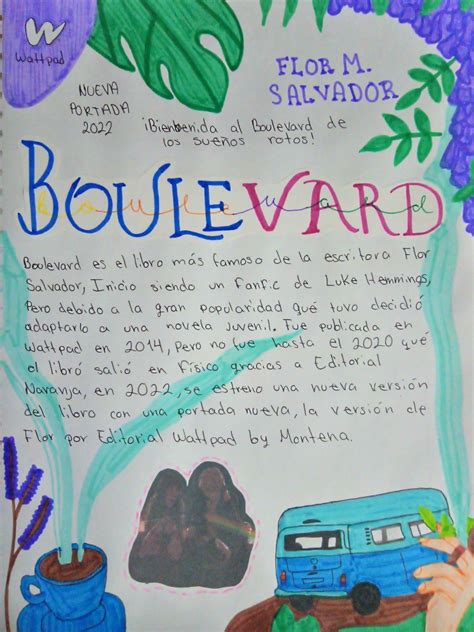 W
Wattpad
NUEVA
PORTADA
2022
FLOR M.
SALVADOR
¡Bienbenida al Boulevard de
los sueños rotos!
BOULEVARD
boulevard
Boulevard es el libro más famoso de la escritora Flor
Salvador, Inicio siendo un fanfic de Luke Hemmings,
Pero debido a la gran popularidad qué tuvo decidió
adaptarlo a una novela juvenil. Fue publicada en
Wattpad en 2014, pero no fue hasta el 2020 qué
el libró salió en físico gracias a Editorial
Naranja, en 2022, se estreno una nueva versión
del libro con una portada nueva, la versión de
Flor por Editorial Wattpad by Montena.